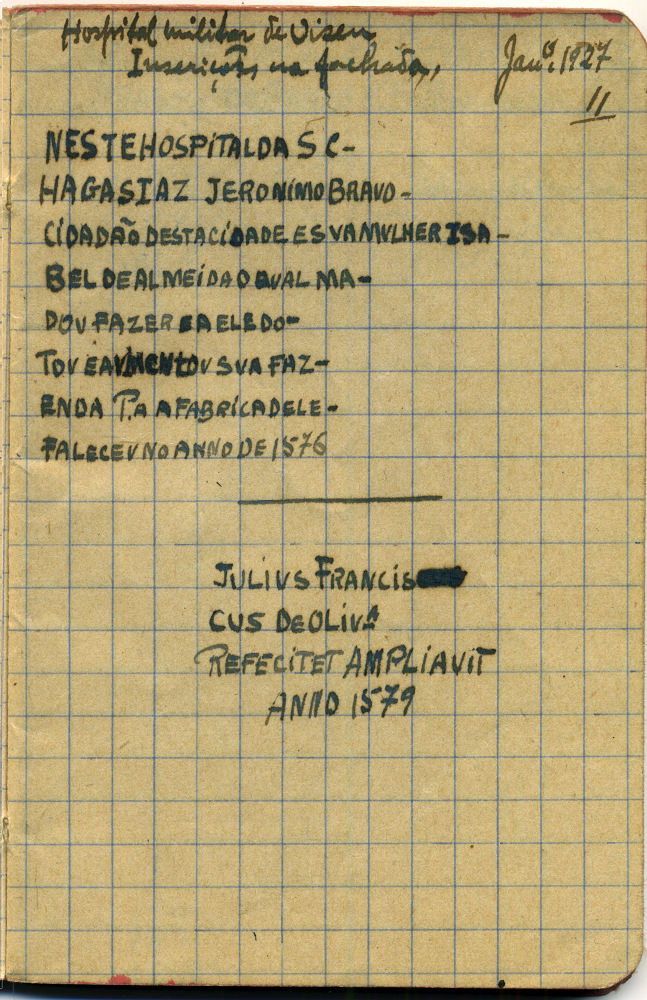 Hospital militar de Viseu
Inscrições na fachada,
Janº. 1927
11
NESTEHOSPITALDA S C-
HAGASIAZ JERONIMOBRAVO-
CIDADÃODESTACIDADEESVAMVLHERISA-
BELDEALMEIDAOQVALMA-
DOVFAZEREAELEDO-
TOVEAVMENTOVSVAFAZ-
ENDA P.A AFABRICADELE-
FALECEVNOANNODE1576
JULIVSFRANCIS
CUS DEOLIVA
REFECITET AMPLIAVIT
ANNO 1579